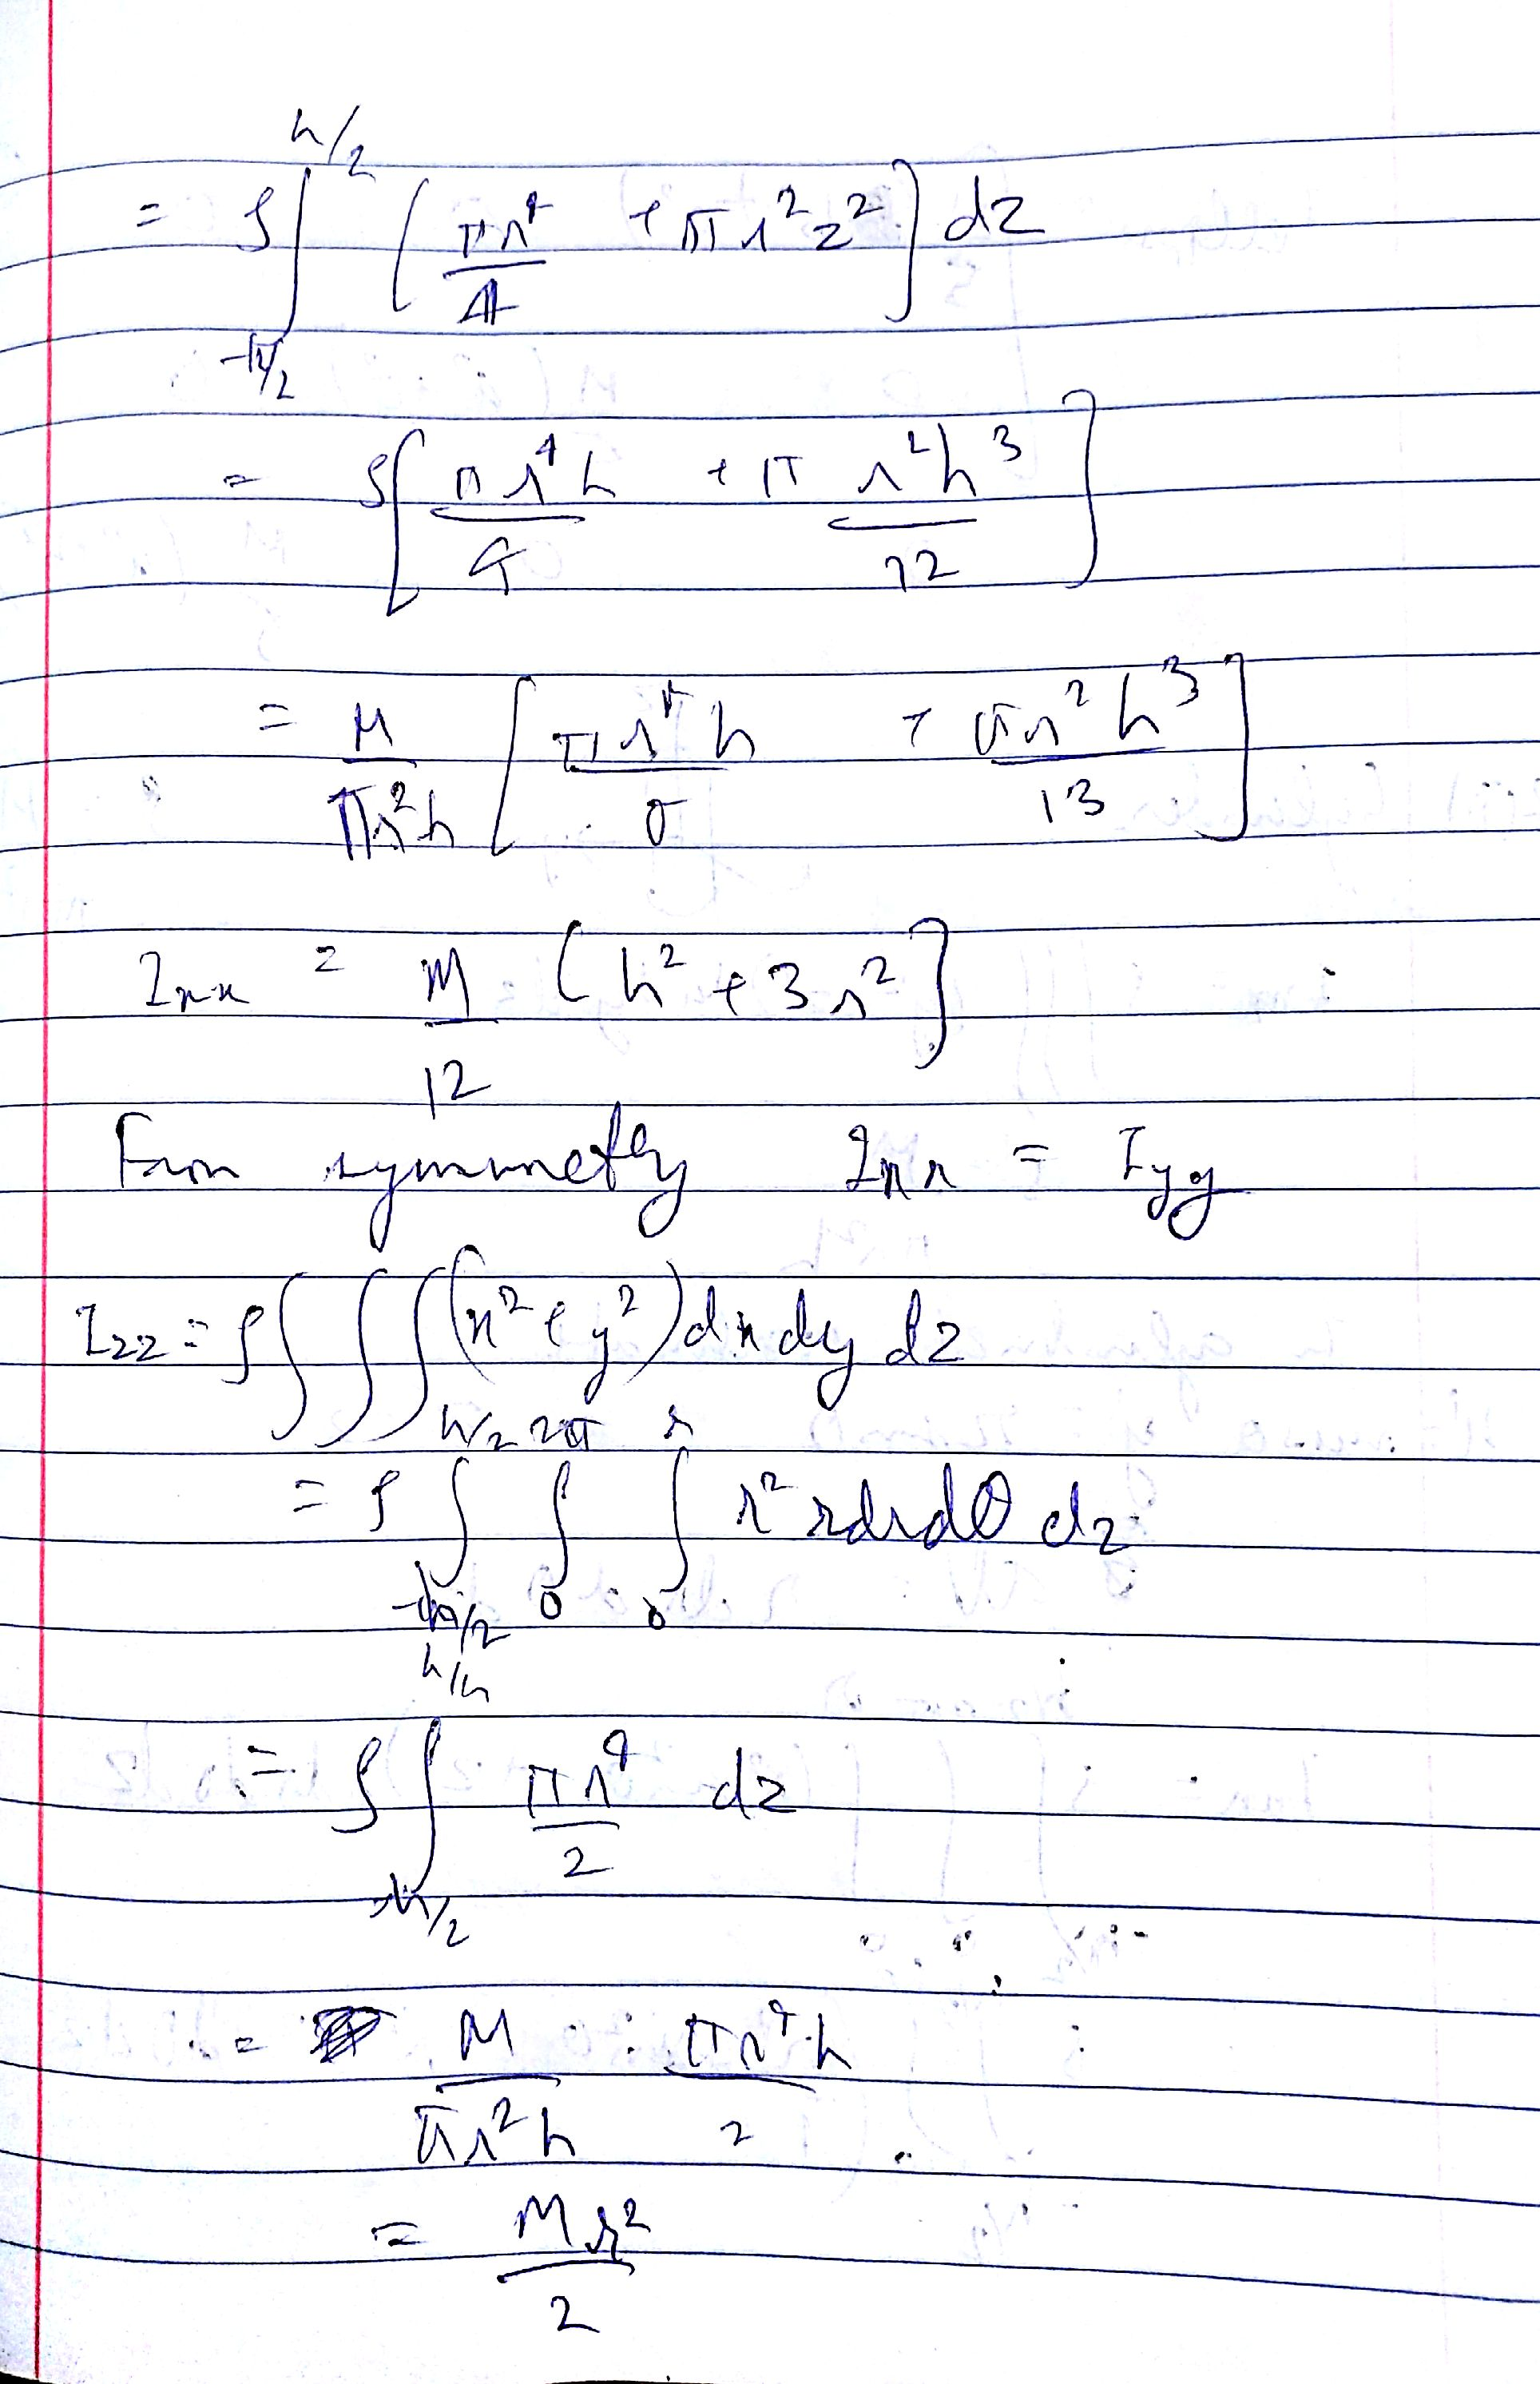 = ρ∫_{-h/2}^{h/2} [πr⁴/4 + πr²z²] dz
= ρ[πr⁴h/4 + π r²h³/12]
= M/πr²h [πr⁴h/σ + πr²h³/13]
Ixx = M/12 [h² + 3r²]
From symmetry Ixx = Iyy
Izz = ρ∫∫∫(x² + y²)dxdy dz
= ρ∫_{-h/2}^{h/2} ∫_0^{2π} ∫_0^r r² rdrdθ dz
= ρ∫_{-h/2}^{h/h} πr⁴/2 dz
= M/πr²h πr⁴h/2
= Mr²/2